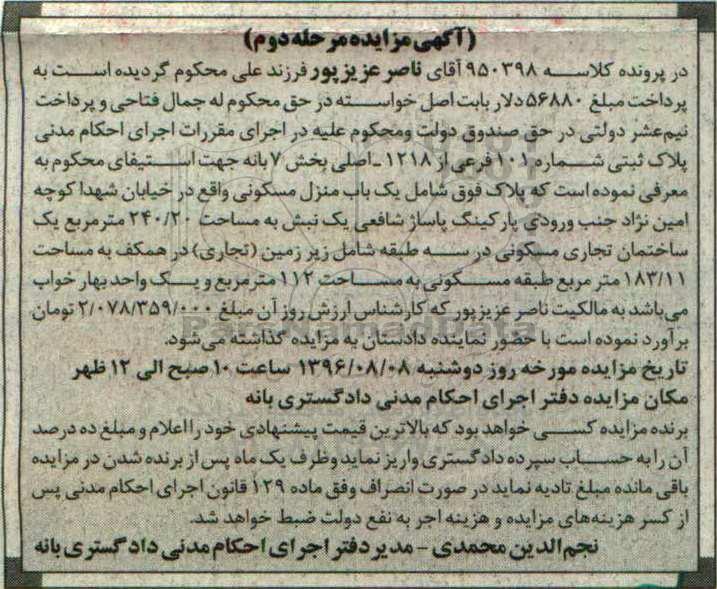 (آگهی مزایده مرحله دوم)
در پرونده کلاسه ۹۵۰۳۹۸ آقای ناصر عزیز پور فرزند علی محکوم گردیده است به
پرداخت مبلغ ۵۶۸۸۰ دلار بابت اصل خواسته در حق محکوم له جمال فتاحی و پرداخت
نیم عشر دولتی در حق صندوق دولت ومحکوم علیه در اجرای مقررات اجرای احکام مدنی
پلاک ثبتی شماره ۱۰۱ فرعی از ۱۲۱۸ ـ اصلی بخش ۷ بانه جهت استیفای محکوم به
معرفی نموده است که پلاک فوق شامل یک باب منزل مسکونی واقع در خیابان شهدا کوچه
امین نژاد جنب ورودی پارکینگ پاساژ شافعی یک نبش به مساحت ۲۴۰/۲۰ مترمربع یک
ساختمان تجاری مسکونی در سه طبقه شامل زیر زمین (تجاری) در همکف به مساحت
۱۸۳/۱۱ متر مربع طبقه مسکونی به مساحت ۱۱۲ مترمربع و یک واحد بهار خواب
می باشد به مالکیت ناصر عزیز پور که کارشناس ارزش روز آن مبلغ ۲/۰۷۸/۳۵۹/۰۰۰ تومان
برآورد نموده است با حضور نماینده دادستان به مزایده گذاشته می شود.
تاریخ مزایده مورخه روز دوشنبه ۱۳۹۶/۰۸/۰۸ ساعت ۱۰ صبح الی ۱۲ ظهر
مکان مزایده دفتر اجرای احکام مدنی دادگستری بانه
برنده مزایده کسی خواهد بود که بالاترین قیمت پیشنهادی خود را اعلام و مبلغ ده درصد
آن را به حساب سپرده دادگستری واریز نماید وظرف یک ماه پس از برنده شدن در مزایده
باقی مانده مبلغ تادیه نماید در صورت انصراف وفق ماده ۱۲۹ قانون اجرای احکام مدنی پس
از کسر هزینه های مزایده و هزینه اجر به نفع دولت ضبط خواهد شد.
نجم الدین محمدی - مدیر دفتر اجرای احکام مدنی دادگستری بانه
ParsNamadData